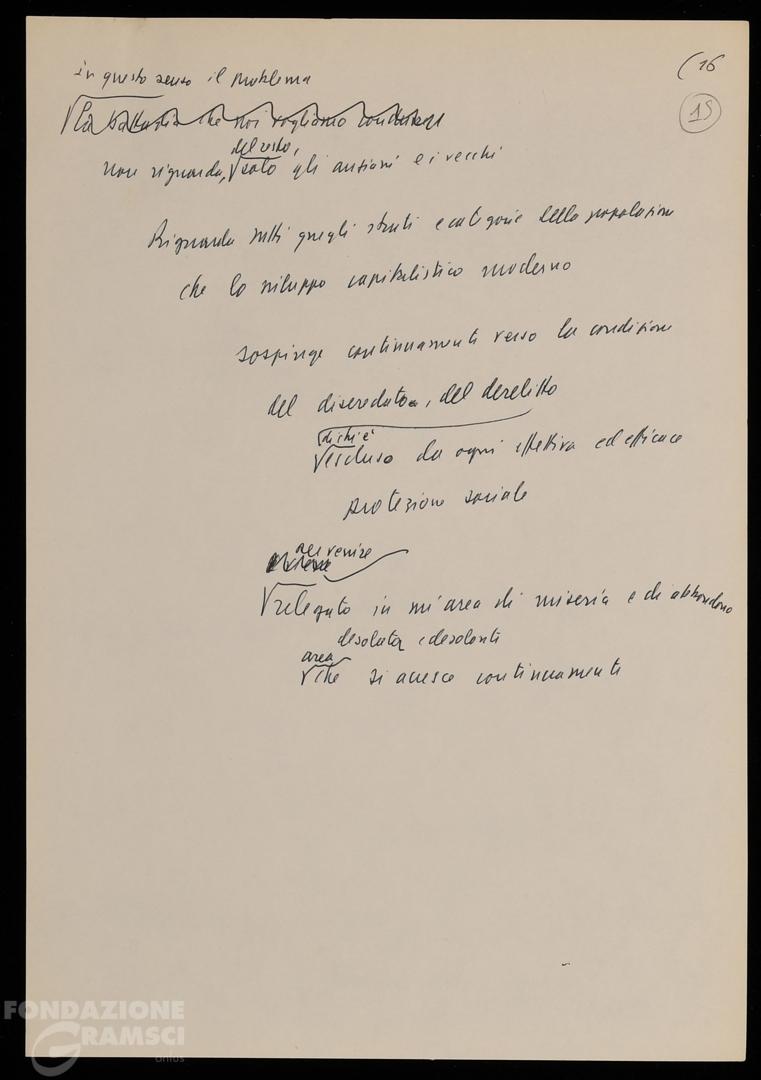 (16
15
in questo senso il problema
La battaglia che noi vogliamo condurre
del resto,
non riguarda, solo gli anziani e i vecchi
Riguarda tutti quegli strati e categorie della popolazione
che lo sviluppo capitalistico moderno
sospinge continuamente verso la condizione
del diseredato, del derelitto
di chi è
escluso da ogni effettiva ed efficace
protezione sociale
per venire
relegato in un'area di miseria e di abbandono
desolata e desolante
area
che si accresce continuamente
FONDAZIONE
GRAMSCI
onlus